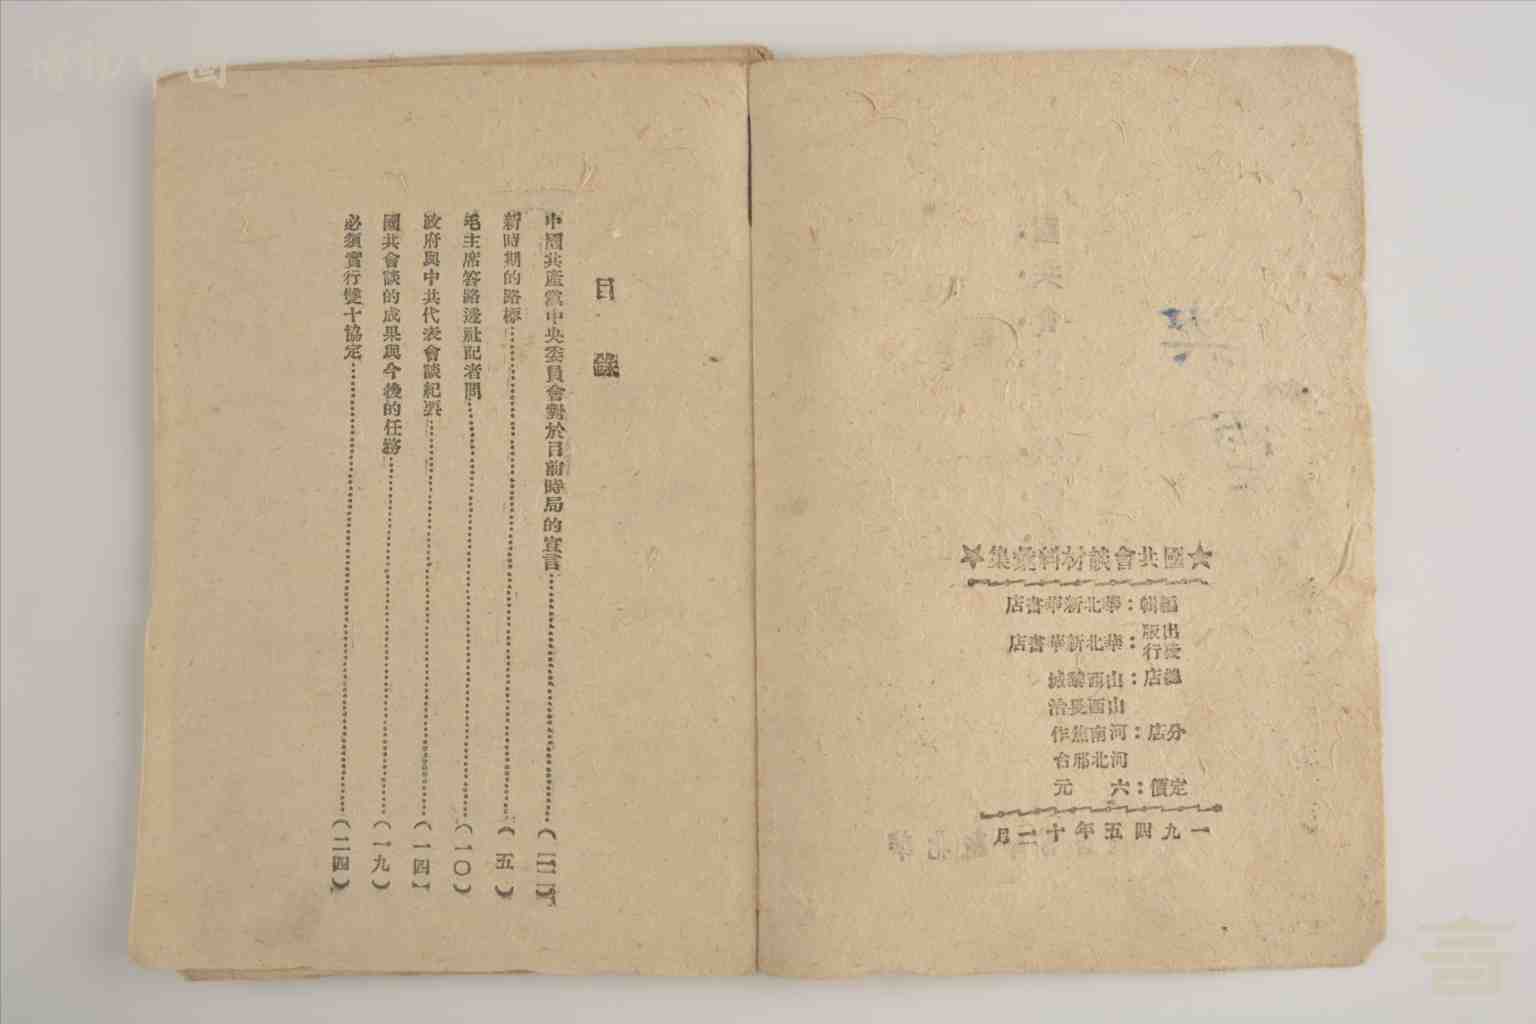 ★國共會談材料彙集★
編輯：華北新華書店
出版發行：華北新華書店
總店：山西黎城
山西長治
分店：河南焦作
河北邢台
定價：六 元
一九四五年十二月
目錄
中國共產黨中央委員會對於目前時局的宣言
新時期的路標……（五）
毛主席答路透社記者問……（一〇）
政府與中共代表會談紀要……（一四）
國共會談的成果與今後的任務……（一九）
必須實行雙十協定……（二四）